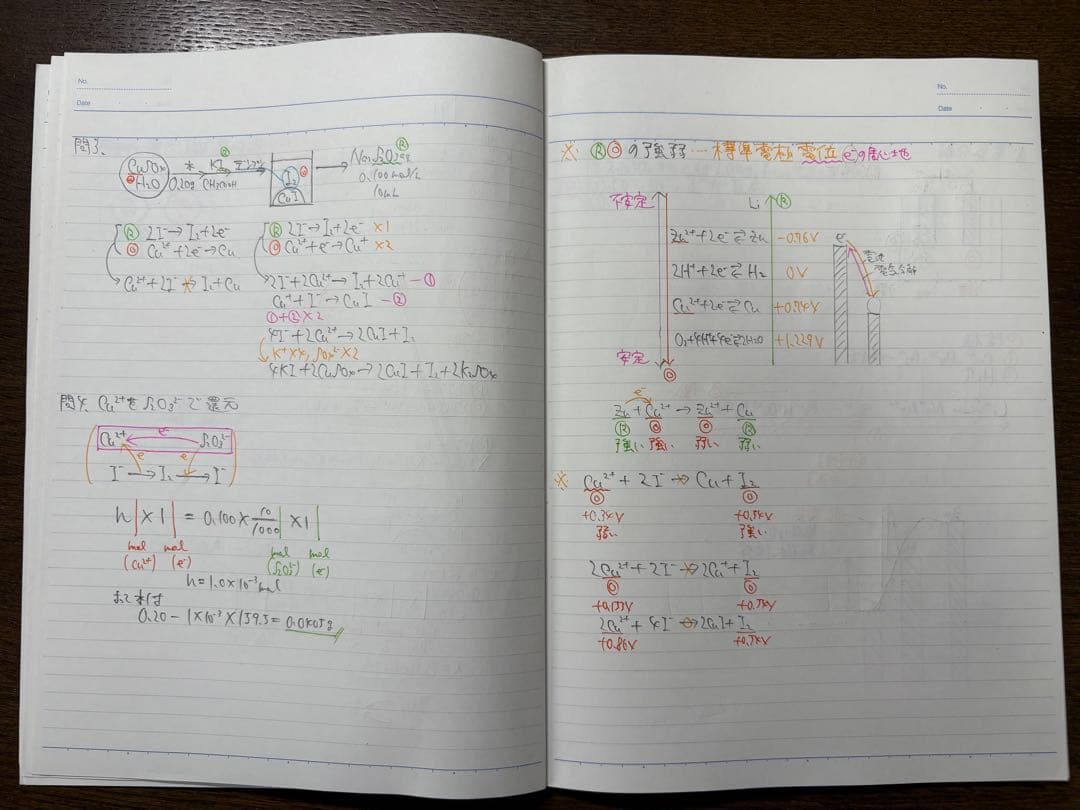 No.
Date
問3.
CuSO4 * KI デンプン I2 Ⓞ → Na2S2O3aq Ⓡ
H2O 0.20g CH3COOH CuI 0.100mol/L
10mL
Ⓡ 2I⁻→I2+2e⁻
Ⓞ Cu²⁺+2e⁻→Cu
Cu²⁺+2I⁻→I2+Cu
Ⓡ 2I⁻→I2+2e⁻ ×1
Ⓞ Cu²⁺+e⁻→Cu⁺ ×2
2I⁻+2Cu²⁺→I2+2Cu⁺ -①
Cu⁺+I⁻→CuI -②
①+②×2
4I⁻+2Cu²⁺→2CuI+I2
K⁺×4, SO4²⁻×2
4KI+2CuSO4→2CuI+I2+2K2SO4
問4. Cu²⁺をS2O3²⁻で還元
Cu²⁺ e⁻ S2O3²⁻
e e
I⁻→I2→I⁻
n|×1|=0.100×10/1000|×1|
mol mol mol mol
(Cu²⁺) (e⁻) (S2O3²⁻) (e⁻)
n=1.0×10⁻³mol
よって 木は
0.20-1×10⁻³×159.5=0.0405g
No.
Date
※ ⓇⓄの強弱…標準電極電位 e⁻の居心地
不安定 Li Ⓡ
Zn²⁺+2e⁻⇄Zn -0.76V e⁻
電池
電気分解
2H⁺+2e⁻⇄H2 0V
Cu²⁺+2e⁻⇄Cu +0.34V
O2+4H⁺+4e⁻⇄2H2O +1.229V
安定
Ⓞ
e⁻
Zn+Cu²⁺→Zn²⁺+Cu
Ⓡ Ⓞ Ⓞ Ⓡ
強い 強い 弱い 弱い
※ Cu²⁺+2I⁻→Cu+I2
Ⓞ Ⓞ
+0.34V +0.54V
弱い 強い
2Cu²⁺+2I⁻→2Cu⁺+I2
Ⓞ Ⓞ
+0.153V +0.54V
2Cu²⁺+4I⁻→2CuI+I2
+0.86V +0.54V